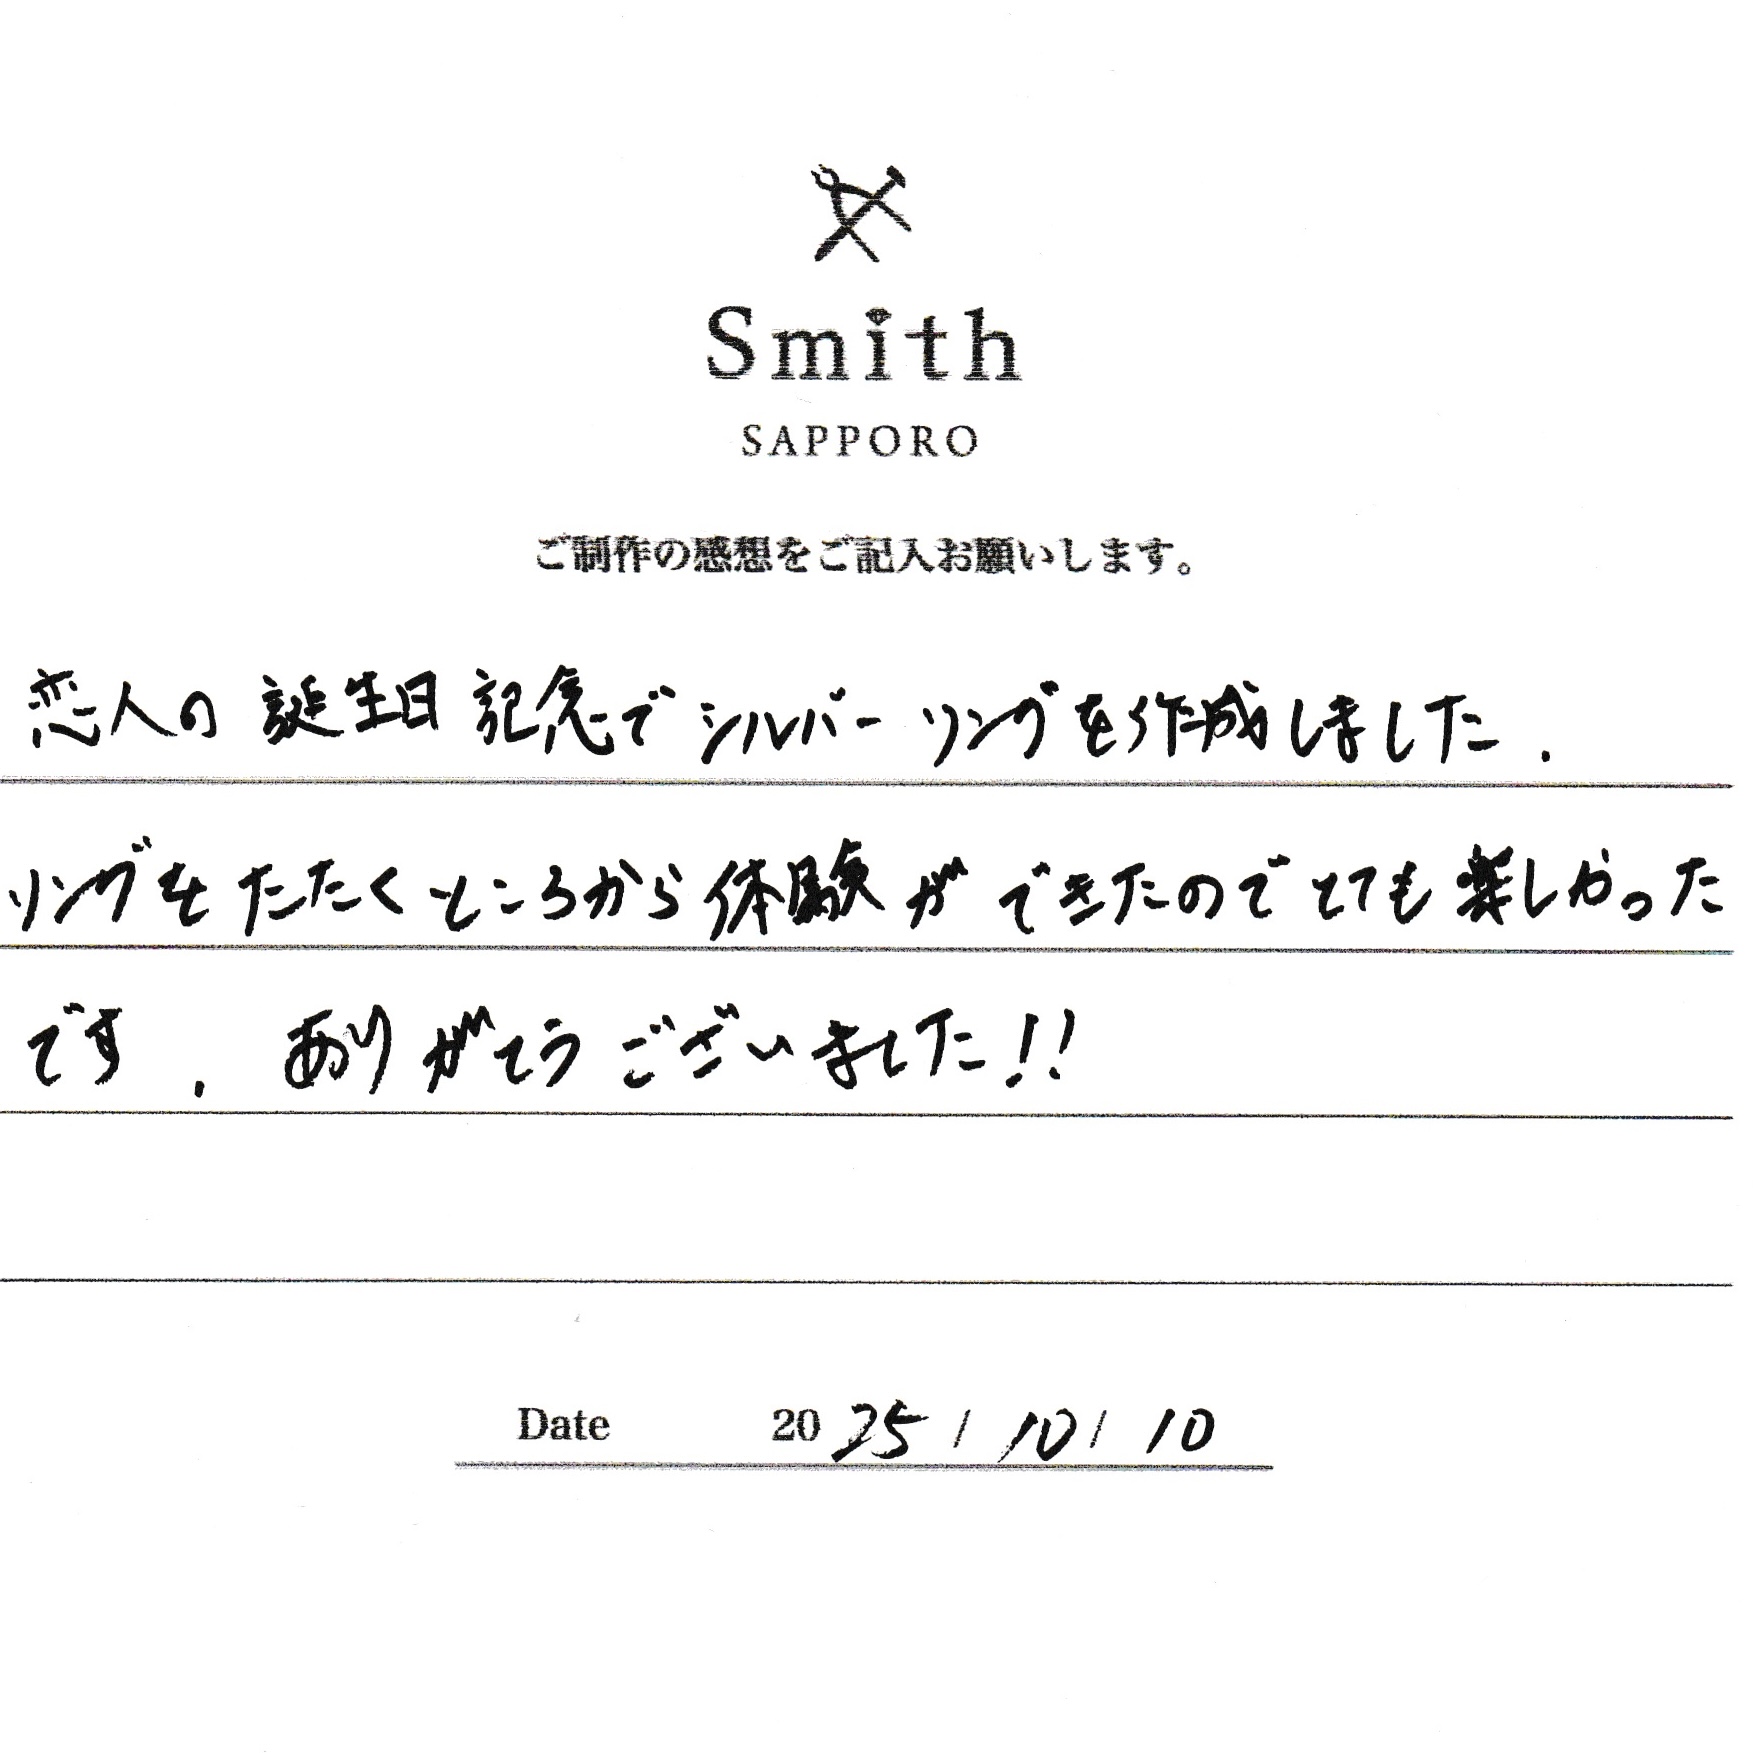 Smith
SAPPORO
ご制作の感想をご記入お願いします。
恋人の誕生日記念でシルバーリングを作成しました.
リングをたたくところから体験ができたのでとても楽しかった
です. ありがとうございました!!
Date 2025/10/10